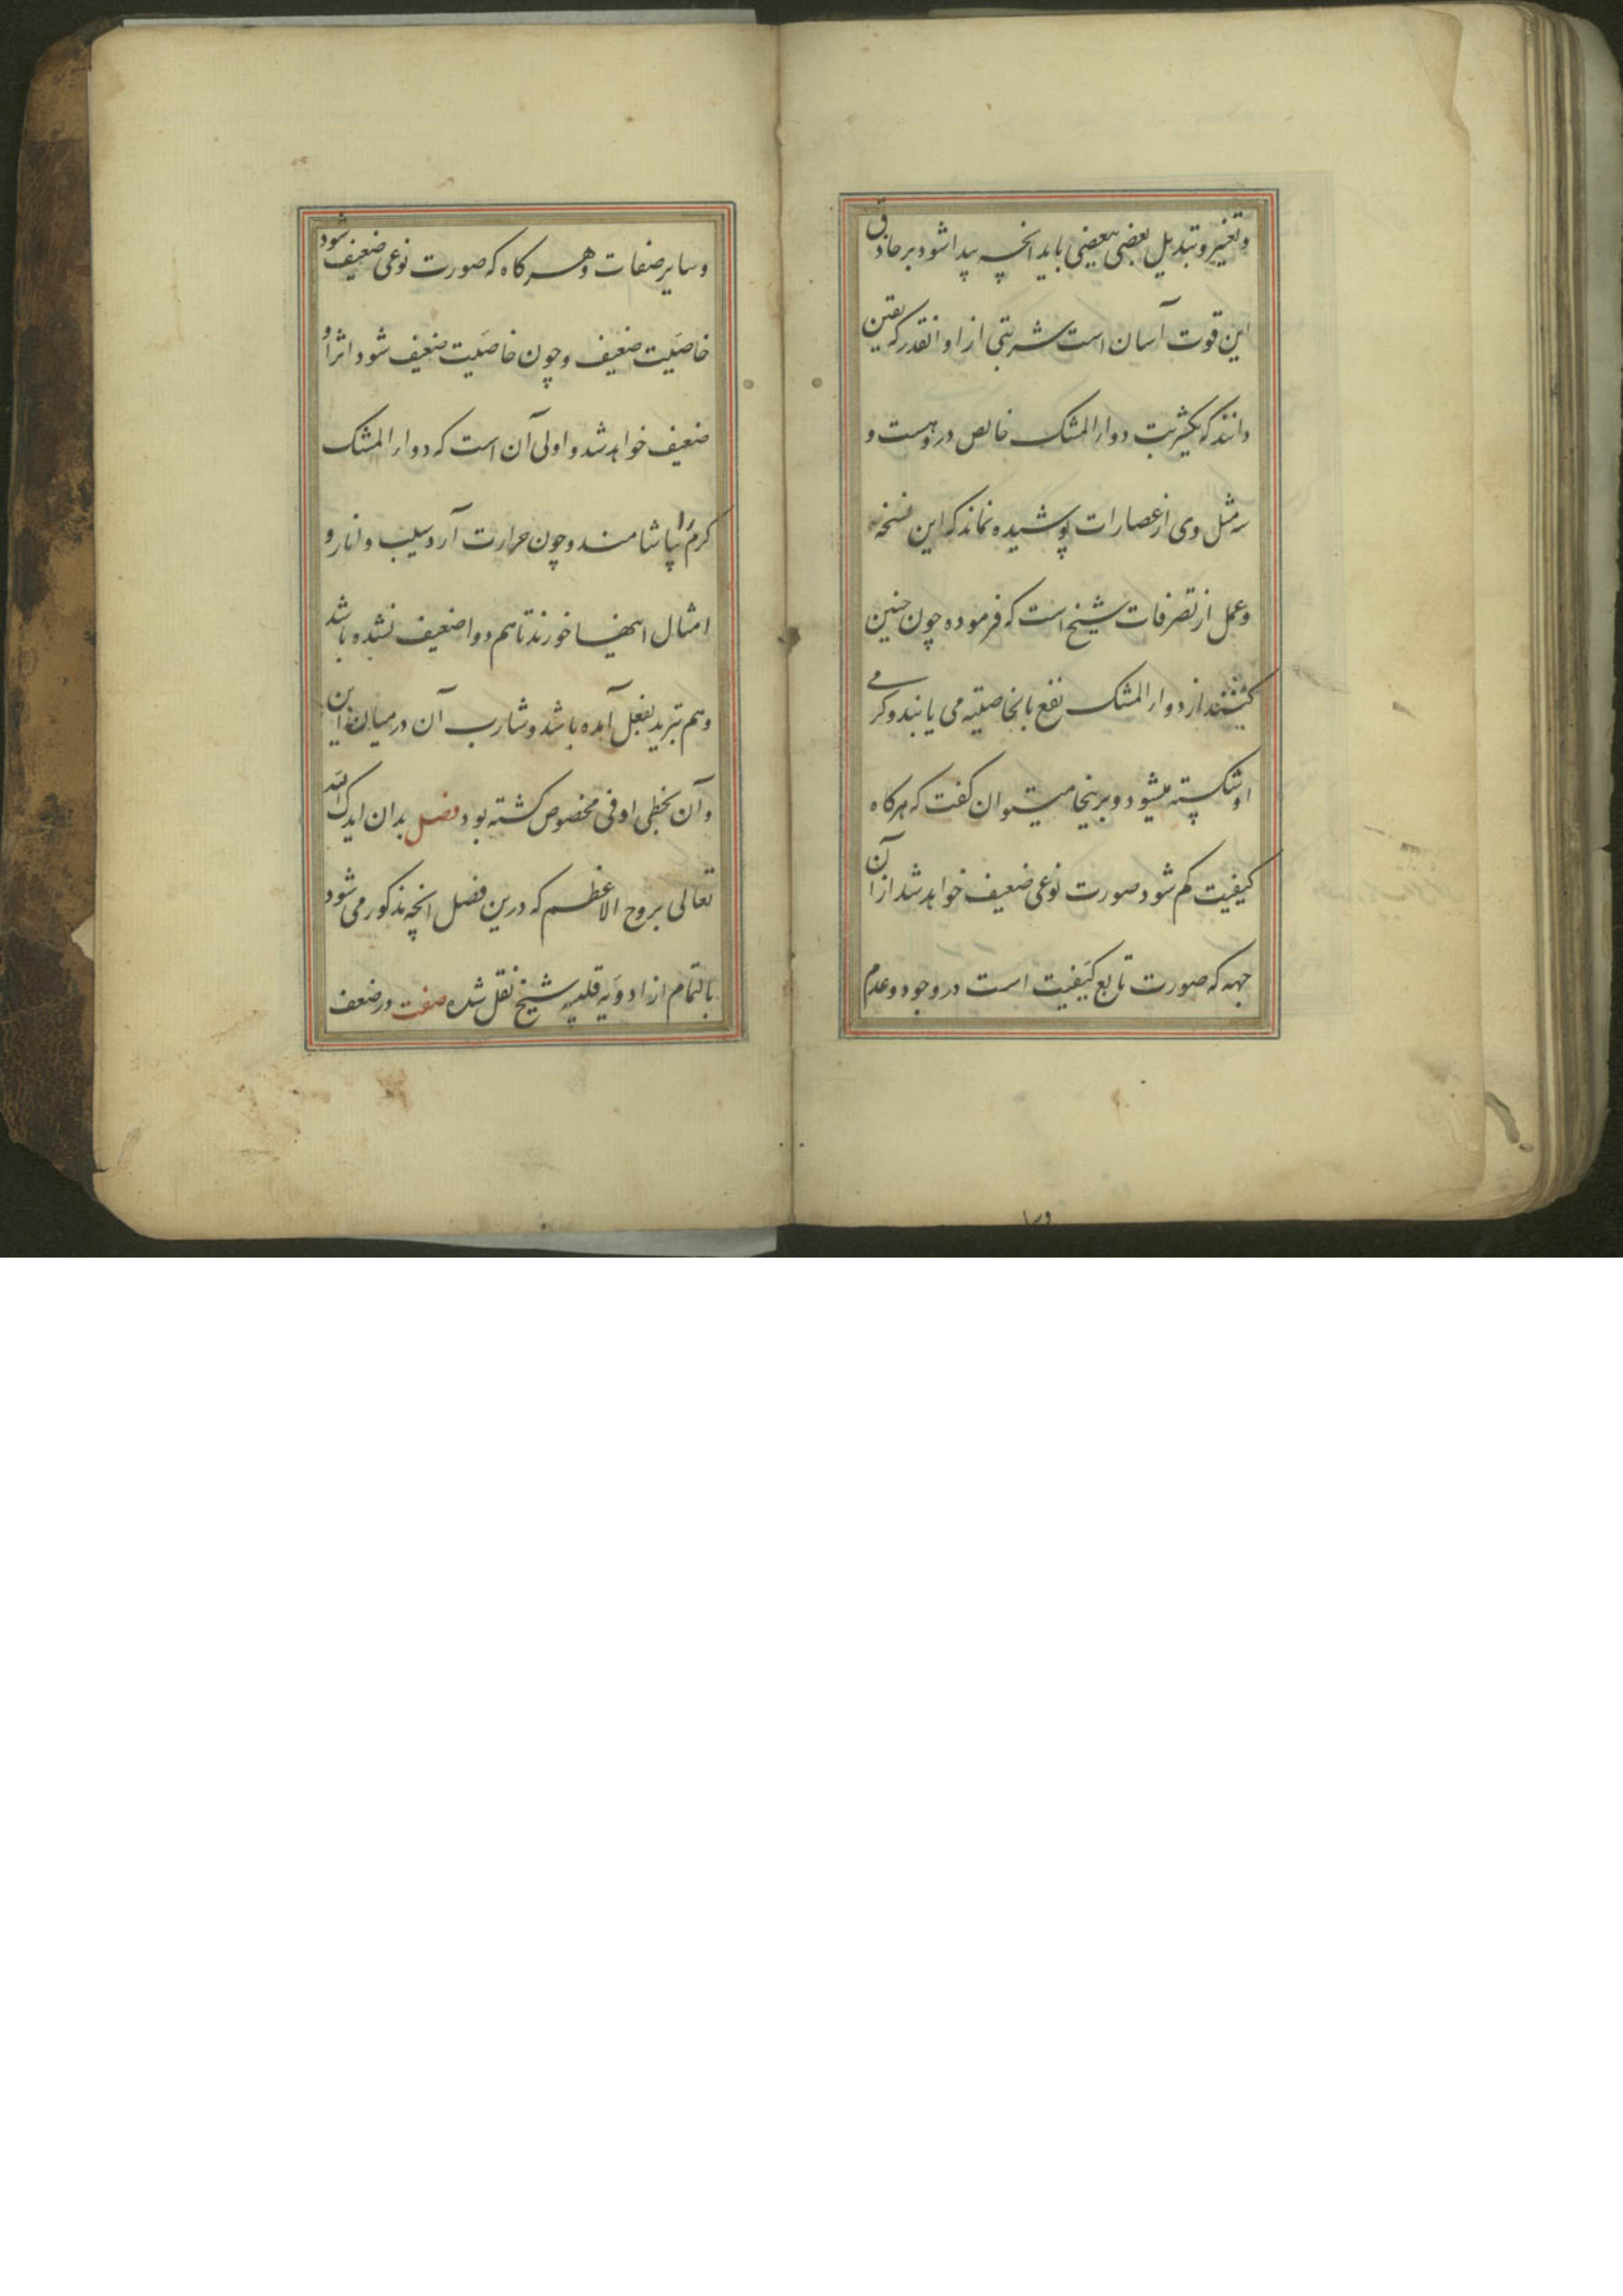 وتغییر و تبدیل بعضی ببعضی باید انچه پیدا شود بر حاذق
این قوت آسان است شربتی از او انقدر که یقین
دانند که یکشربت دواء المشک خالص در وهست و
سه مثل وی از عصارات پوشیده نماند که این نسخه
وعمل از تصرفات شیخ است که فرموده چون چنین
کنند از دواء المشک نفع بالخاصیته می یابند و کرمی
او شکسته میشود و برینجا میتوان کفت که هرکاه
کیفیت کم شود صورت نوعی ضعیف خواهد شد از آن
جهه که صورت تابع کیفیت است در وجود وعدم
وسا
وسایر صفات و هر کاه که صورت نوعی ضعیف شود
خاصیت ضعیف وچون خاصیت ضعیف شود اثر او
ضعیف خواهد شد و اولی آن است که دواء المشک
کرم را بیاشامند وچون حرارت آرد سیب وانار و
امثال اینها خورند تا هم دوا ضعیف نشده باشد
وهم تبرید بفعل آمده باشد وشارب آن در میان این
وآن بخطی اوفی مخصوص کشته بود فصل بدان ایدک الله
تعالی بروح الاعظم که درین فصل انچه مذکور می شود
بالتمام از ادویه قلبیه شیخ نقل شده صفت در ضعف